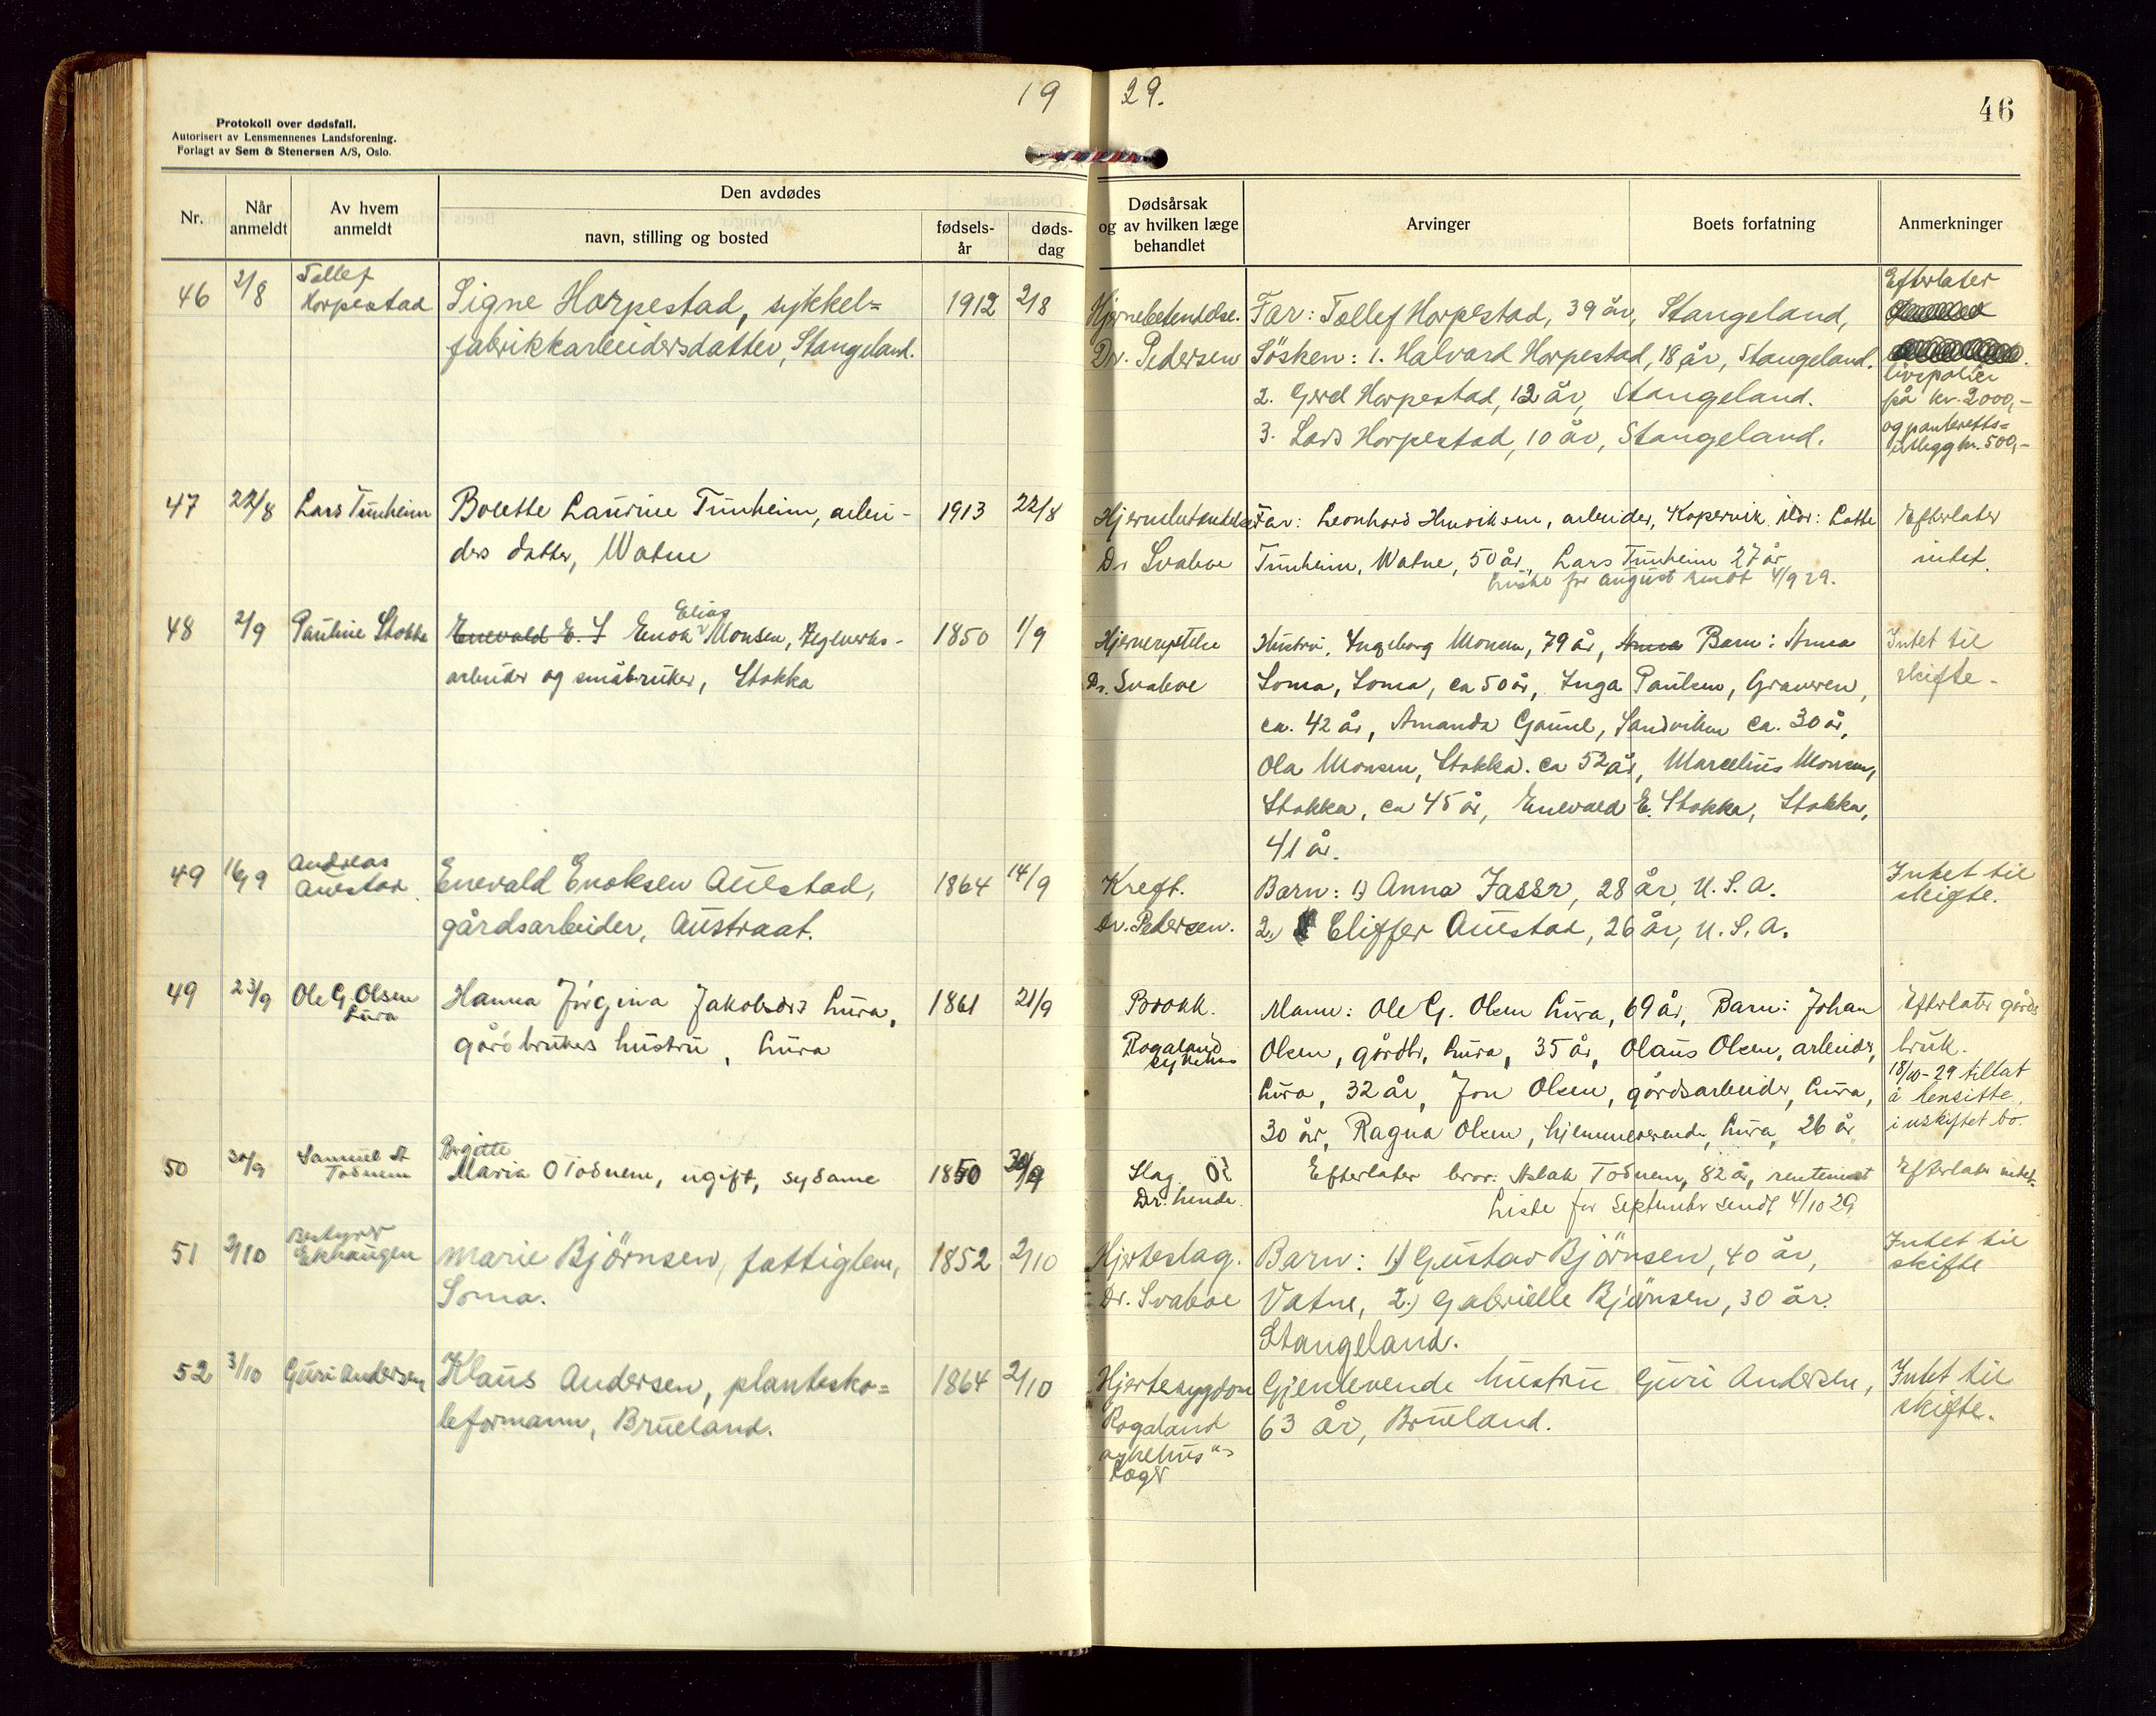 19 29.
46
Protokoll over dødsfall.
Autorisert av Lensmennenes Landsforening.
Forlagt av Sem & Stenersen A/S, Oslo.
Nr. Når anmeldt Av hvem anmeldt Den avdødes navn, stilling og bosted fødsels-år døds-dag Dødsårsak og av hvilken læge behandlet Arvinger Boets forfatning Anmerkninger
46 2/8 Tollef Horpestad Signe Horpestad, sykkel= 1912 2/8 Hjernebetendelse. Far: Tollef Horpestad, 39 år, Stangeland, Efterlater
fabrikkarbeidersdatter, Stangeland. Dr. Pedersen Søsken: 1. Halvard Horpestad, 18 år, Stangeland. livspolise
2. Gerd Horpestad, 12 år, Stangeland. på kr. 2000,-
3. Lars Horpestad, 10 år, Stangeland. og panteretts=
utlegg kr. 500,-
47 22/8 Lars Tunheim Bolette Laurine Tunheim, arbei- 1913 22/8 Hjernebetendelse Far: Leonhard Henriksen, arbeider, Kopervik. Mor: Lotte Efterlater
ders datter, Watne Dr Svaboe Tunheim, Watne, 50 år, Lars Tunheim 27 år intet.
Liste for august sendt 4/9 29.
48 2/9 Pauline Stokke Enevald E. S Enok Elias Monsen, teglverks- 1850 1/9 Hjernerystelse Hustru, Ingeborg Monsen, 79 år, Anna Barn: Anna Intet til
arbeider og småbruker, Stokka Dr. Svaboe Soma, Soma, ca 50 år, Inga Paulsen, Gravaren, skifte-
ca. 42 år, Amanda Gausel, Sandviken ca. 30 år,
Ola Monsen, Stokka. ca 52 år, Marcelius Monsen,
Stokka, ca 45 år, Enevald E. Stokka, Stokka,
41 år.
49 16/9 Andreas Auestad. Enevald Enoksen Auestad, 1864 14/9 Kreft. Barn: 1) Anna Jasser, 28 år, U.S.A. Intet til
gårdsarbeider, Austraat. Dr. Pedersen. 2.) Eliffer Auestad, 26 år, U.S.A. skifte.
49 23/9 Ole G. Olsen Lura Hanna Jørgina Jakobsdtr Lura, 1861 21/9 Brokk. Mann: Ole G. Olsen Lura, 69 år, Barn: Johan Efterlater gårds
gårdbrukers hustru, Lura Rogaland sykehus Olsen, gårdbr, Lura, 35 år, Olaus Olsen, arbeider, bruk.
Lura, 32 år, Jon Olsen, gårdsarbeider, Lura, 18/10-29 tillat å hensitte
30 år, Ragna Olsen, hjemmeværende, Lura, 26 år i uskiftet bo.
50 30/9 Samuel A Todnem Birgitte Maria O Todnem, ugift, sydame 1850 30/9 Slag Efterlater bror: Aslak Todnem, 82 år, rentenist Efterlater intet.
Dr. Lunde. Liste for September sendt 4/10 29
51 2/10 Bestyrer Ekhaugen Marie Bjørnsen, fattiglem, 1852 2/10 Hjerteslag. Barn: 1.) Gustav Bjørnsen, 40 år, Intet til
Soma. Dr. Svaboe Vatne, 2.) Gabrielle Bjørnsen, 30 år. skifte
Stangeland.
52 3/10 Guri Andersen Klaus Andersen, plantesko= 1864 2/10 Hjertesygdom Gjenlevende hustru Guri Andersen, Intet til
leformann, Brueland. Rogaland 63 år, Brueland. skifte.
sykehus"s
Læger